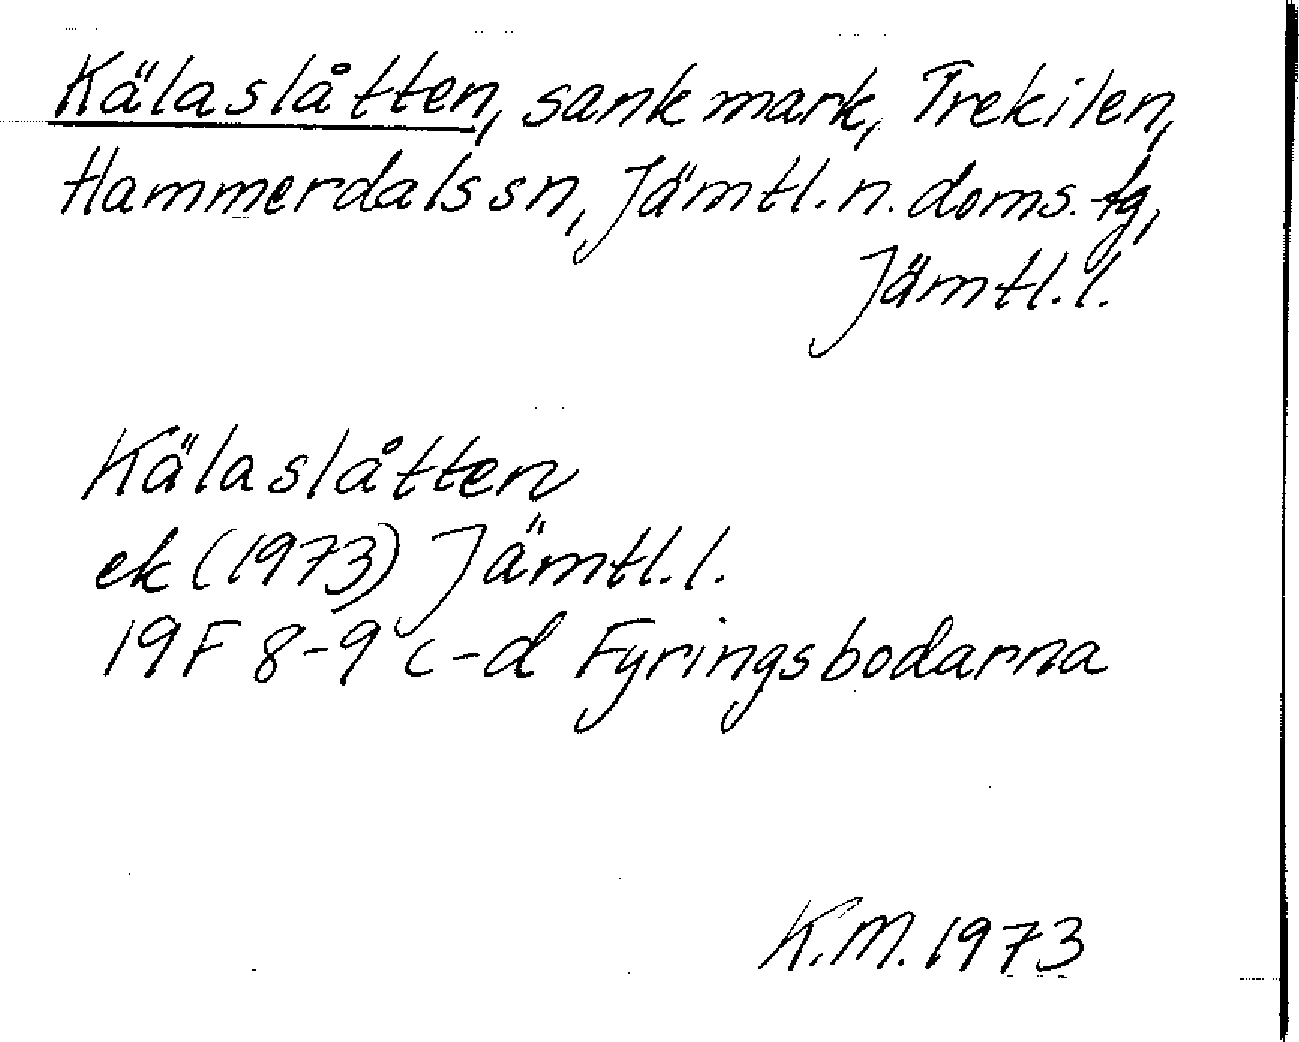 Kälaslåtten, sank mark, Trekilen,
Hammerdals sn, Jämtl. n. doms. tg,
Jämtl. l.
Kälaslåtten
ek (1973) Jämtl. l.
19F 8-9 c-d Fyringsbodarna
K.M. 1973